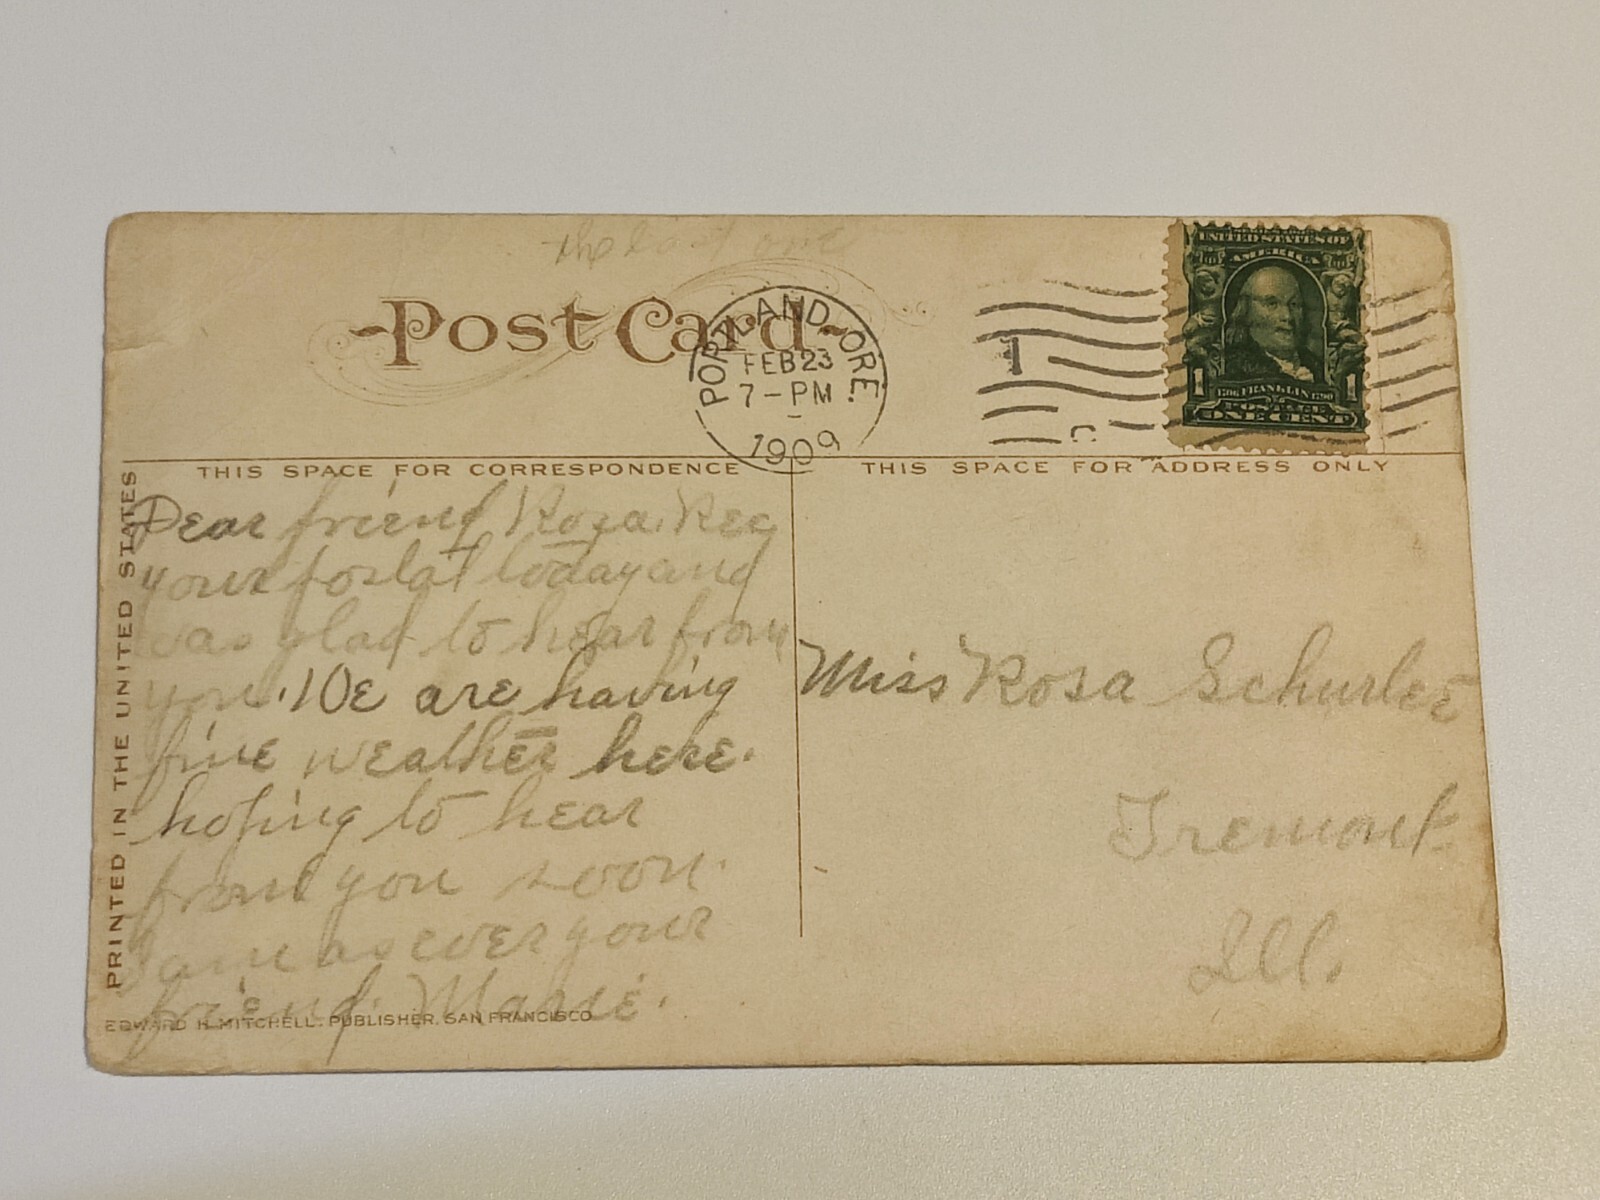 the last one
Post Card
PORTLAND, ORE.
FEB 23
7-PM
1909
1
C
UNITED STATES OF
AMERICA
1706 FRANKLIN 1790
1 1
POSTAGE
ONE CENT
THIS SPACE FOR CORRESPONDENCE
THIS SPACE FOR ADDRESS ONLY
PRINTED IN THE UNITED STATES
Dear friend Rosa. Rec
your postal today and
was glad to hear from
you. We are having
fine weather here.
hoping to hear
from you soon.
Same as ever your
friend. Marie.
EDWARD H. MITCHELL, PUBLISHER, SAN FRANCISCO
Miss Rosa
Tremont
Ill.